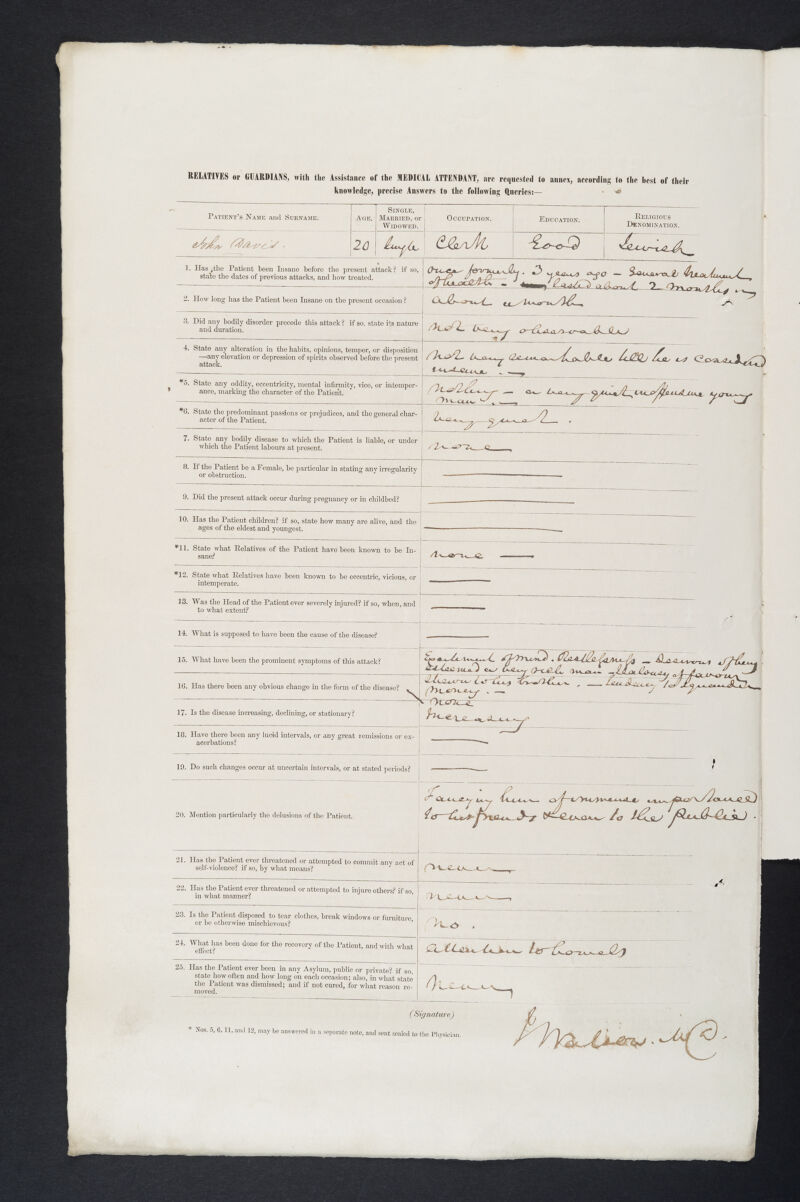 RELATIVES or GUARDIANS, with the Assistance of the MEDICAL ATTENDANT, are requested to annex, according to the best of their
knowledge, precise Answers to the following Queries:—
PATIENT'S NAME and SURNAME.
AGE.
SINGLE, MARRIED, or WIDOWED.
OCCUPATION.
EDUCATION.
RELIGIOUS DENOMINATION.
John Davis.
20
Single
Clerk
Good
Jewish
1. Has the Patient been Insane before the present attack? if so,
state the dates of previous attacks, and how treated.
once formerly. 3 years ago – General treatment
of health – lasted about 2 months
2. How long has the Patient been Insane on the present occasion?
about a month
3. Did any bodily disorder precede this attack? if so, state its nature
and duration.
Not very observable
4. State any alteration in the habits, opinions, temper, or disposition
—any elevation or depression of spirits observed before the present
attack.
Not very remarkable till he is considered
insane. —
*5. State any oddity, eccentricity, mental infirmity, vice, or intemper-
ance, marking the character of the Patient.
Nothing – a very quiet inoffensive young
man. —
*6. State the predominant passions or prejudices, and the general char-
acter of the Patient.
Very quiet.
7. State any bodily disease to which the Patient is liable, or under
which the Patient labours at present.
none
8. If the Patient be a Female, be particular in stating any irregularity
or obstruction.
9. Did the present attack occur during pregnancy or in childbed?
10. Has the Patient children? if so, state how many are alive, and the
ages of the eldest and youngest.
*11. State what Relatives of the Patient have been known to be In-
sane?
none —
*12. State what Relatives have been known to be eccentric, vicious, or
intemperate.
13. Was the Head of the Patient ever severely injured? if so, when, and
to what extent?
14. What is supposed to have been the cause of the disease?
15. What have been the prominent symptoms of this attack?
Excitement of mind. Restlessness – Desirous of being
esteemed a very rich man – Jealousy of favour
shewn to his brother. – tendency to squander
money. —
16. Has there been any obvious change in the form of the disease?
none
17. Is the disease increasing, declining, or stationary?
Increasing
18. Have there been any lucid intervals, or any great remissions or ex-
acerbations?
19. Do such changes occur at uncertain intervals, or at stated periods?
20. Mention particularly the delusions of the Patient.
Fancying him of immense importance
to his friends & even to the public.
21. Has the Patient ever threatened or attempted to commit any act of
self-violence? if so, by what means?
never
22. Has the Patient ever threatened or attempted to injure others? if so,
in what manner?
never
23. Is the Patient disposed to tear clothes, break windows or furniture,
or be otherwise mischievous?
No.
24. What has been done for the recovery of the Patient, and with what
effect?
attention to bowels
25. Has the Patient ever been in any Asylum, public or private? if so,
state how often and how long on each occasion; also, in what state
the Patient was dismissed; and if not cured, for what reason re-
moved.
Never
(Signature)
J Watson. MD.
* Nos. 5, 6, 11, and 12, may be answered in a separate note, and sent sealed to the Physician.